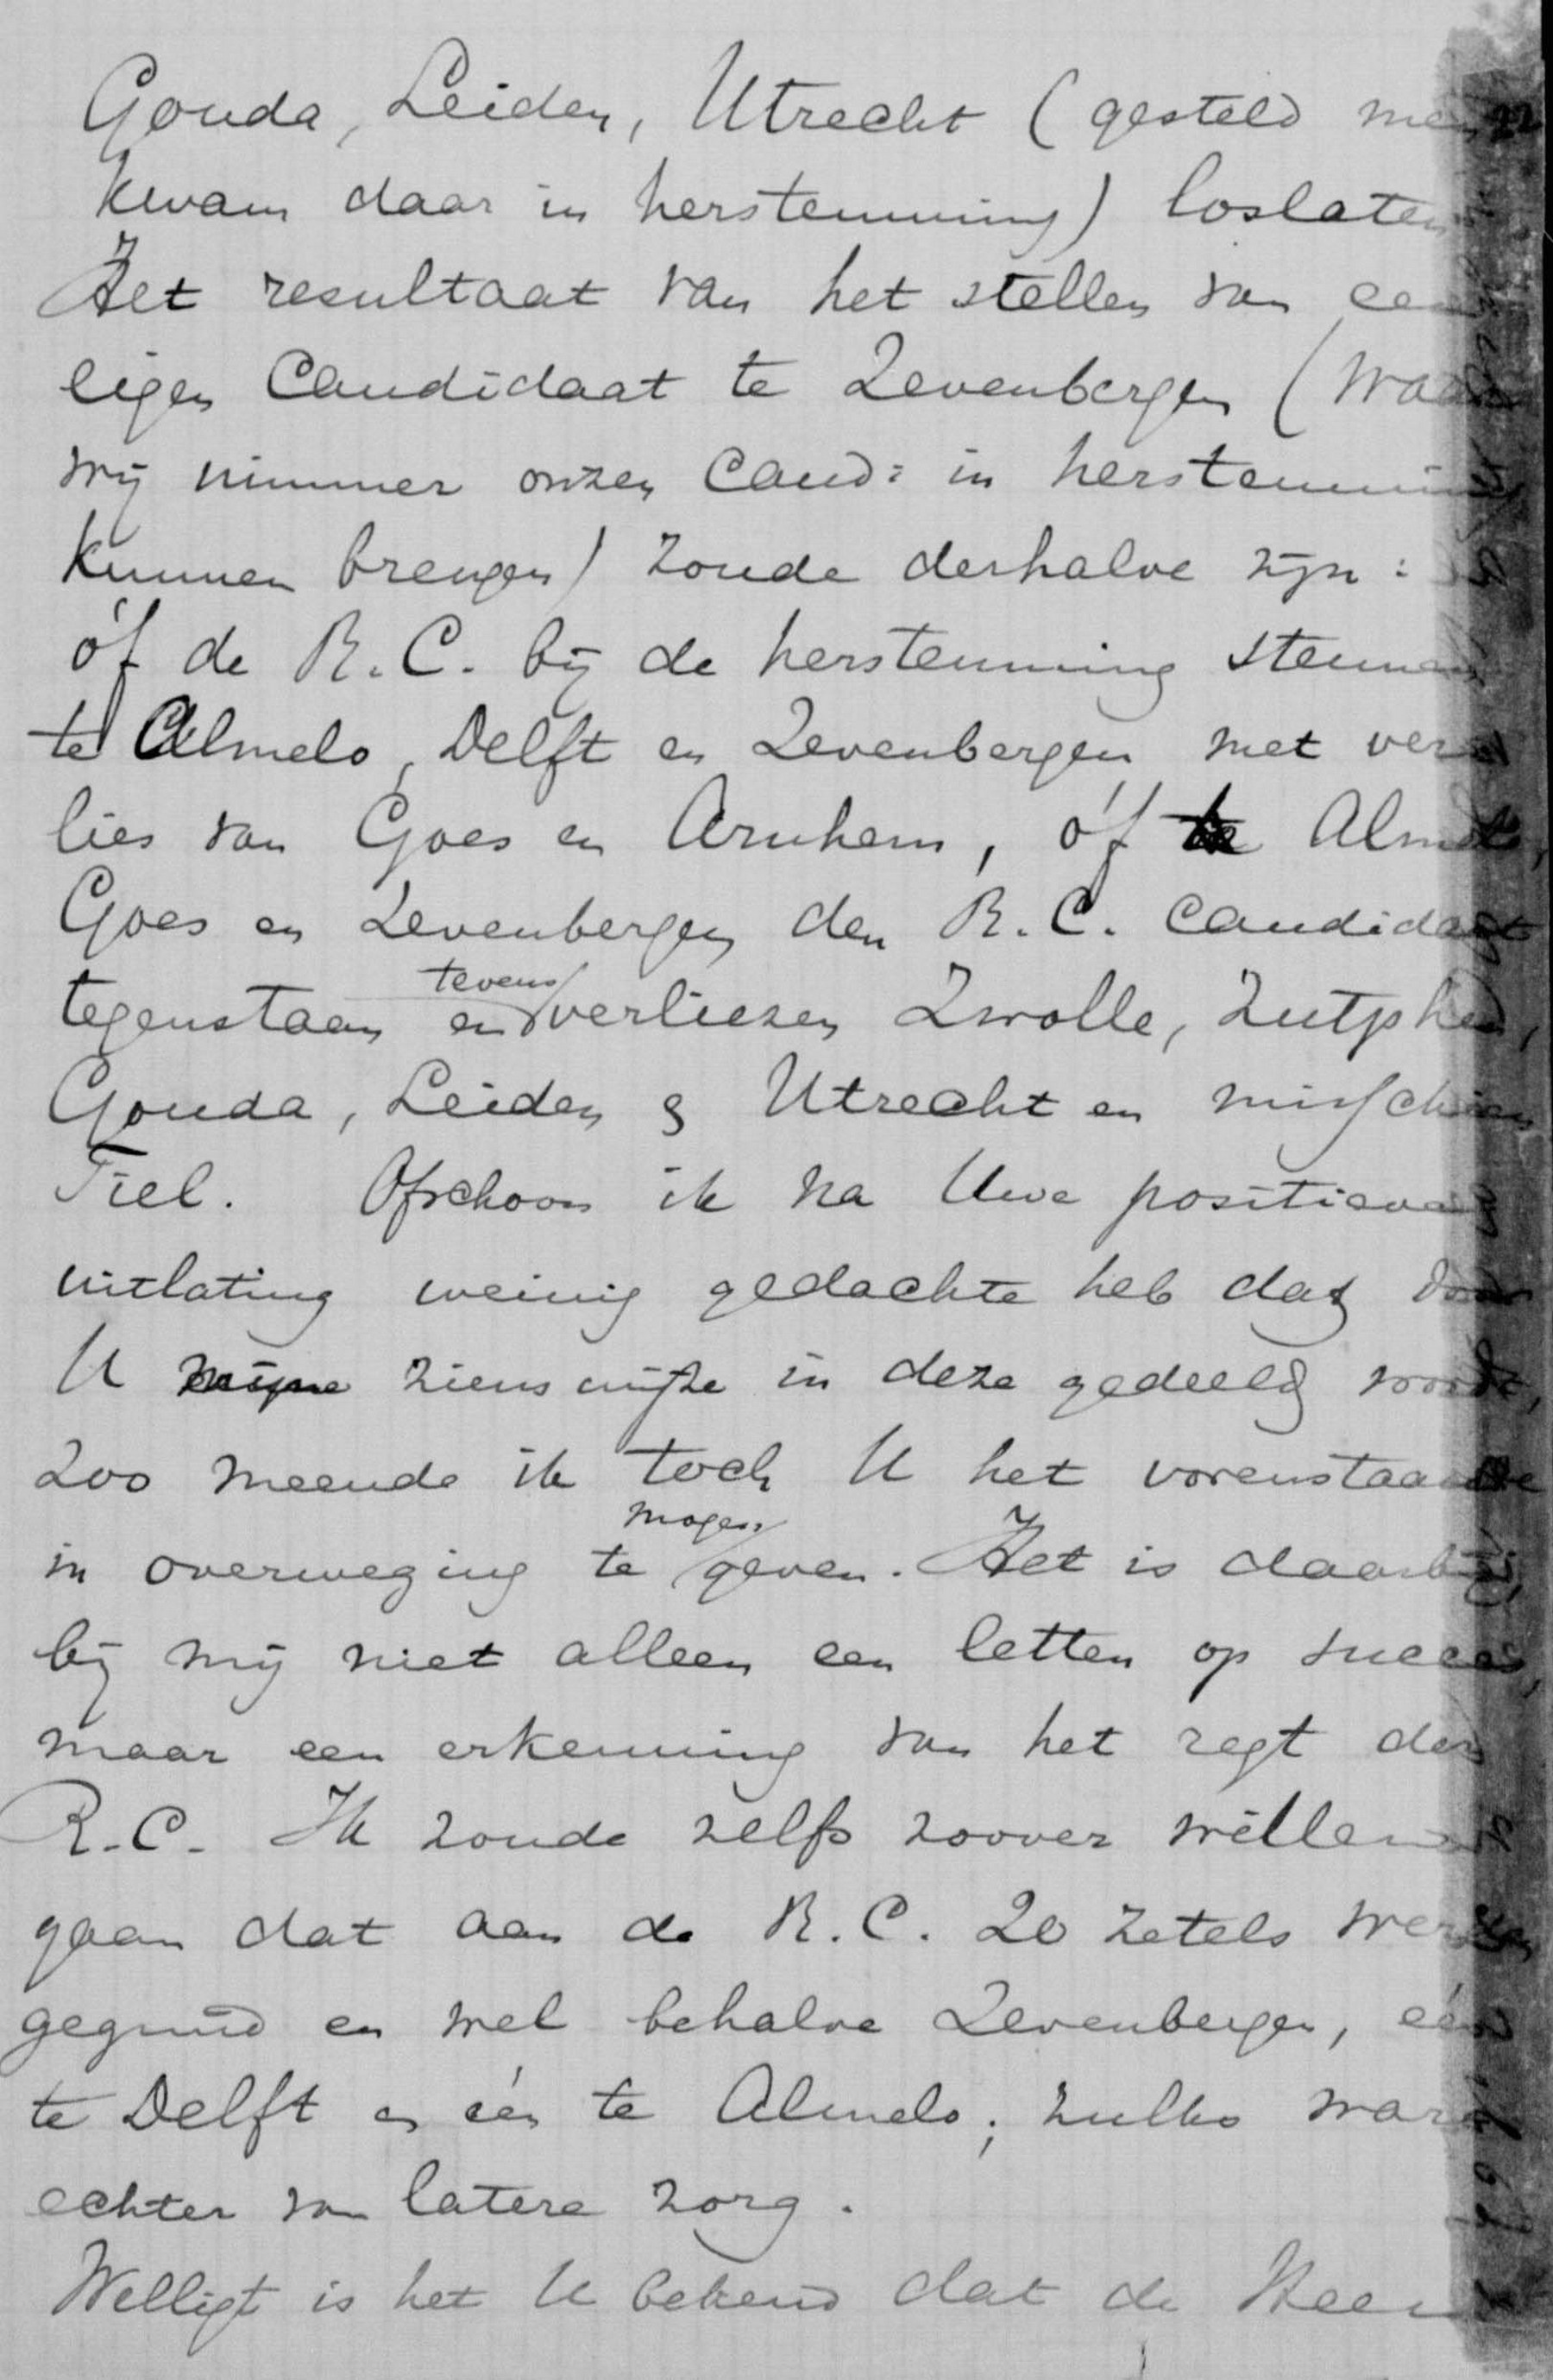 Gouda, Leiden, Utrecht (gesteld men
kwam daar in herstemming) loslaten
Het resultaat van het stellen van een
eigen Candidaat te Zevenbergen (waar
wij nimmer onzen Cand: in herstemming
kunnen brengen) zoude derhalve zijn:
óf de R.C. bij de herstemming steunen
te Almelo, Delft en Zevenbergen met ver
lies van Goes en Arnhem, óf te Almelo,
Goes en Zevenbergen den R.C. Candidaat
tegenstaan en tevens verliezen Zwolle, Zutphen,
Gouda, Leiden & Utrecht en misschien
Tiel. Ofschoon ik na Uwe positieve
uitlating weinig gedachte heb dat door
U mijne zienswijze in deze gedeeld wordt,
zoo meende ik toch U het vorenstaande
in overweging te mogen geven. Het is daarbij
bij mij niet alleen een letten op succes,
maar een erkenning van het regt der
R.C. Ik zoude zelfs zoover willen
gaan dat aan de R.C. 20 zetels werden
gegund en wel behalve Zevenbergen, één
te Delft en één te Almelo; zulks ware
echter van latere zorg.
Welligt is het U bekend dat de Heer